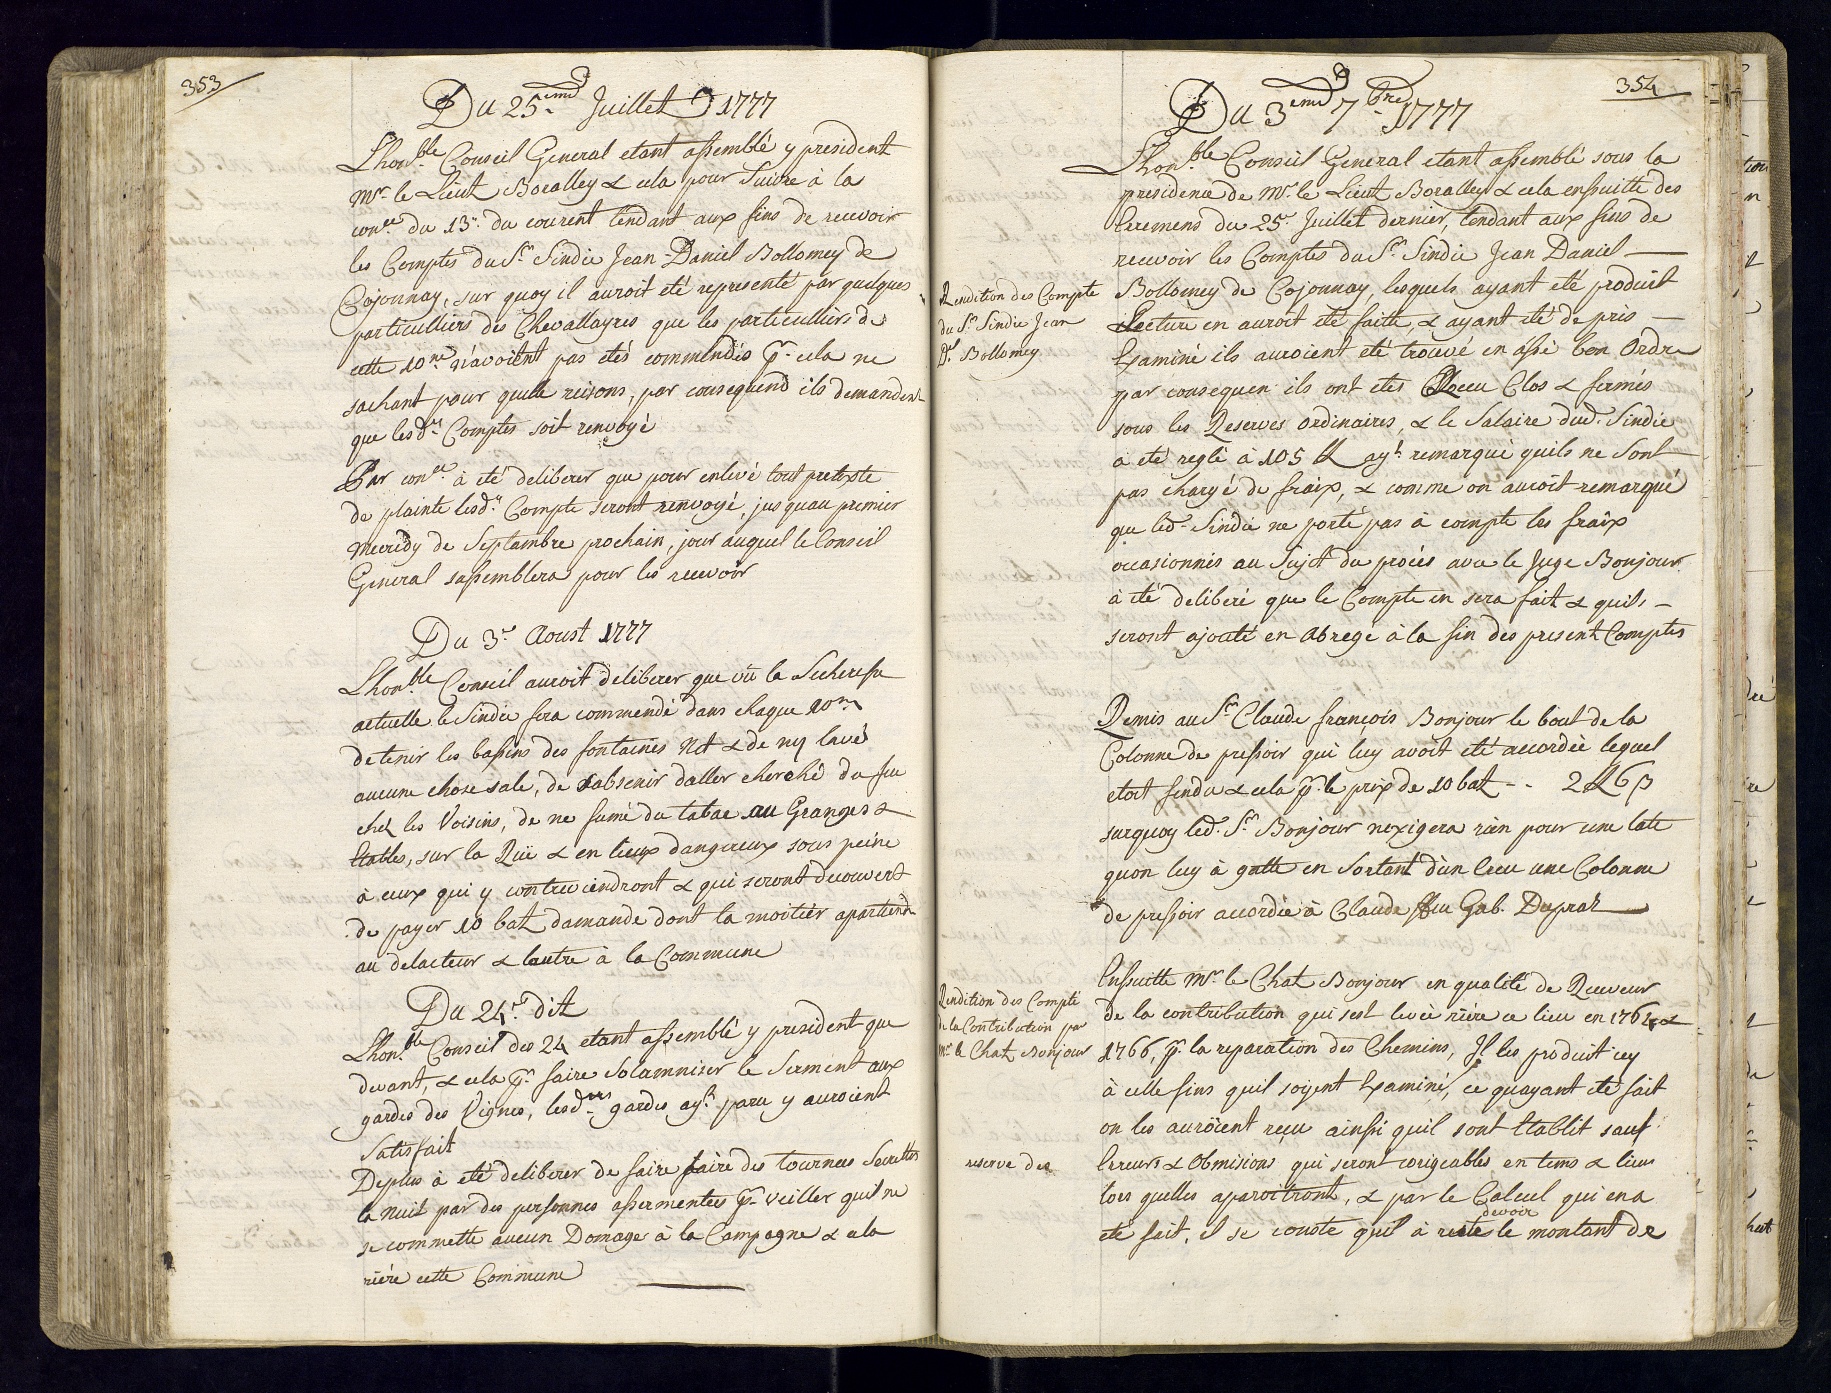 353
Du 25eme Juillet 1777
Lhonble Conseil General etant assemblé y president
Mr le Lieut Boralley & cela pour Suivre à la
conce du 13e du courent tendant aux fins de recevoir
les Comptes du Sr Sindic Jean-Daniel Bollomey de
Cojonnay, sur quoy il auroit eté representé par quelques
particulliers des Chevallayres que les particulliers de
cette 10ne n'avoitent pas etés commendés pr cela ne
sachant pour quelle reisons, par consequend ils demandent
que lesdts Comptes soit renvoyé
Par conce à eté deliberer que pour enlevé tout pretexte
de plainte lesdts Compte seront renvoyé, jusquau premier
Mecredy de Septembre prochain, jour auquel le Conseil
General sassemblera pour les recevoir
Du 3e Aoust 1777
Lhonble Conseil auroit deliberer que vû la Secheresse
actuelle le Sindic fera commendé dans chaque 10ne
de tenir les bassins des fontaines Net & de ny lavé
aucune chose sale, de sabsenir daller cherché du feu
ché les Voisins, de ne fumé du tabac au Granges &
Etables, sur la Rüe & en lieux dangereux sous peine
à ceux qui y contreviendront & qui seront decouvert
de payer 10 batz damande dont la moitiér apartiendra
au delacteur & lautre à la Commune
Du 24e dit
Lhonble Conseil des 24 etant assemblé y president que
devant, & cela pr faire Solamniser le Serment aux
gardes des Vignes, lesdtes gardes ayt paru y auroient
Satisfait
Deplus à eté deliberer de faire faire des tournees Secrettes
la nuit par des personnes assermentees pr veiller quil ne
se commette aucun Domage à la Campagne & ala
riére cette Commune
354
Du 3eme 7bre 1777
Lhonble Conseil General etant assemblé sous la
presidence de Mr le Lieut Boralley & cela ensuitte des
Erremend du 25e Juillet dernier, tendant aux fins de
recevoir les Comptes du Sr Sindic Jean Daniel
Bollomey de Cojonnay, lesquels ayant eté produit
Lecture en auroit eté faitte, & ayant eté de pris
Examiné ils auroient eté trouvé en assé bon Ordre
par consequen ils ont etés Recu Clos & fermés
sous les Reserves ordinaires, & le Salaire dud. Sindic
à eté reglé à 105 ll ayt remarqué quils ne Sont
pas chargé de fraix, & comme on auroit remarqué
que led. Sindic ne porté pas à compte les fraix
occasionnés au Sujet du procés avec le Juge Bonjour
à eté deliberé que le Compte en sera fait & quils
seront ajouté en Abregé à la fin des present Comptes
Rendition des Compte
du Sr Sindic Jean
Dl Bollomey
Remis au Sr Claude françois Bonjour le bout de la
Colonne de pressoir qui luy avoit eté accordée lequel
etoit fendu & cela pr le prix de 10 batz -- 2 ll 6 β
surquoy led. Sr Bonjour nexigera rien pour une late
quon luy à gatte en Sortant dun lieu une Colonne
de pressoir accordée à Claude feu Gab. Dupraz
Ensuitte Mr le Chat Bonjour en qualité de Receveur
de la contribution qui sest levée riére ce lieu en 1764 &
1766, pr la reparation des Chemins, Il les produit icy
à celle fins quil soyent Examiné, ce quayant eté fait
on les auroient reçu ainssi quil sont Etablit sauf
Erreurs & Obmisions qui seront corigeables en tems & lieux
lors quelles aparoitront, & par le Calcul qui en a
eté fait, il se conste quil à reste devoir le montant de
Rendition des Compté
de la Contribution par
Mr le Chat Bonjour
reserve des